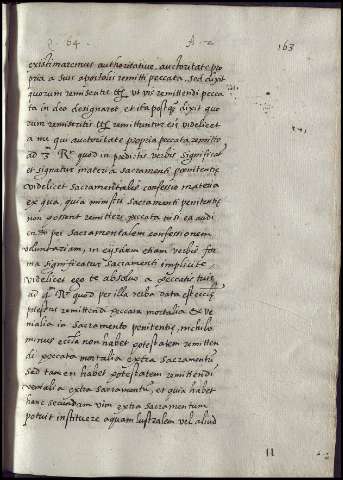 2. 64. A. 2 163
existimaremus authoritative, auctoritate pro
pria a suis apostolis remitti peccata, sed dixit
quorum remiseritis ut vis remittendi pecca
ta in deo designaret, et ita postq̃ dixit quo
rum remiseritis remittuntur eis videlicet
a me qui authoritate propria peccata remitto
ad 3 Rr quod in praedictis verbis significat
et signatur materia sacramenti poenitentie
videlicet sacramentales confessio materia
ex qua, quia ministri sacramenti penitentie
non possent remittere peccata nisi ea audi
endo per sacramentalem confessionem
voluntariam, in eisdem etiam verbis for
ma significatur sacramenti implicite,
videlicet ego te absoluo a peccatis tuis
ad Rr quod per illa verba data est eccłie
potestas remittendi peccata mortalia et ve
nialia in sacramento penitentie, nichilo
minus ecclia non habet potestatem remitten
di peccata mortalia extra sacramentũ
sed tamen habet potestatem remittendi
venialia extra sacramentũ, et quia habet
hanc secundam vim extra sacramentum
potuit instituere aquam lustralem vel aliud
11